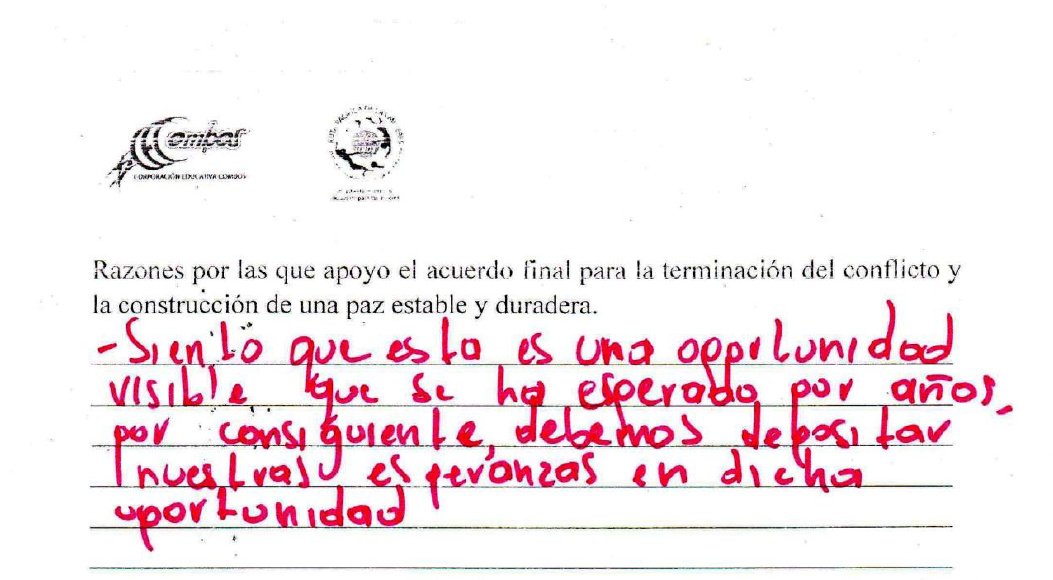 Combos
CORPORACIÓN EDUCATIVA COMBOS
Razones por las que apoyo el acuerdo final para la terminación del conflicto y
la construcción de una paz estable y duradera.
- Siento que esta es una oportunidad
visible que se ha esperado por años,
por consiguiente, debemos depositar
nuestras esperanzas en dicha
oportunidad